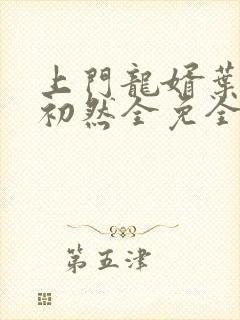 上門龍婿葉
初然全免全
第五津